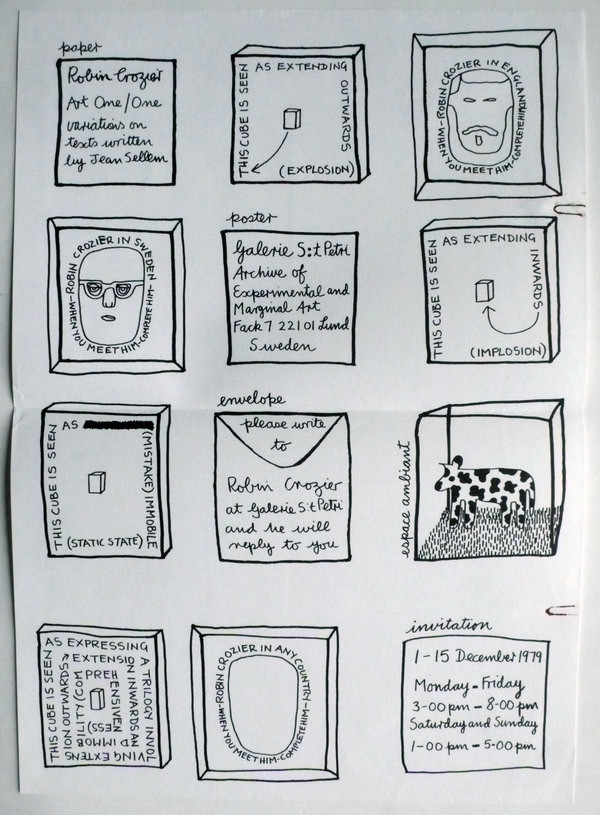 paper
Robin Crozier
Art One/One
variations on
texts written
by Jean Sellem
THIS CUBE IS SEEN
AS EXTENDING
OUTWARDS
(EXPLOSION)
ROBIN CROZIER IN ENGLAND
WHEN YOU MEET HIM-COMPLETE HIM
ROBIN CROZIER IN SWEDEN
WHEN YOU MEET HIM-COMPLETE HIM
poster
Galerie S:t Petri
Archive of
Experimental and
Marginal Art
Fack 7 22101 Lund
Sweden
THIS CUBE IS SEEN
AS EXTENDING
INWARDS
(IMPLOSION)
THIS CUBE IS SEEN
AS
(MISTAKE) IMMOBILE
(STATIC STATE)
envelope
please write
to
Robin Crozier
at Galerie S:t Petri
and he will
reply to you
espace ambiant
THIS CUBE IS SEEN
AS EXPRESSING
A TRILOGY INVOL
VING EXTENS
ION OUTWARDS
EXTENSIO
N INWARDS AN
D IMMOB
ILITY (COM
PREH
ENSIVEN
ESS)
ROBIN CROZIER IN ANY COUNTRY
WHEN YOU MEET HIM-COMPLETE HIM
invitation
1-15 December 1979
Monday-Friday
3-00 pm - 8-00 pm
Saturday and Sunday
1-00 pm - 5-00 pm